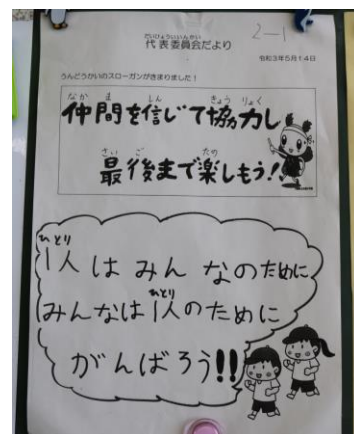 2-1
だいひょういいんかい
代表委員会だより
令和3年5月14日
うんどうかいのスローガンがきまりました!
なかま しん きょうりょく
仲間を信じて協力し
さいご たの
最後まで楽しもう!
ひとり
1人はみんなのために
ひとり
みんなは1人のために
がんばろう!!